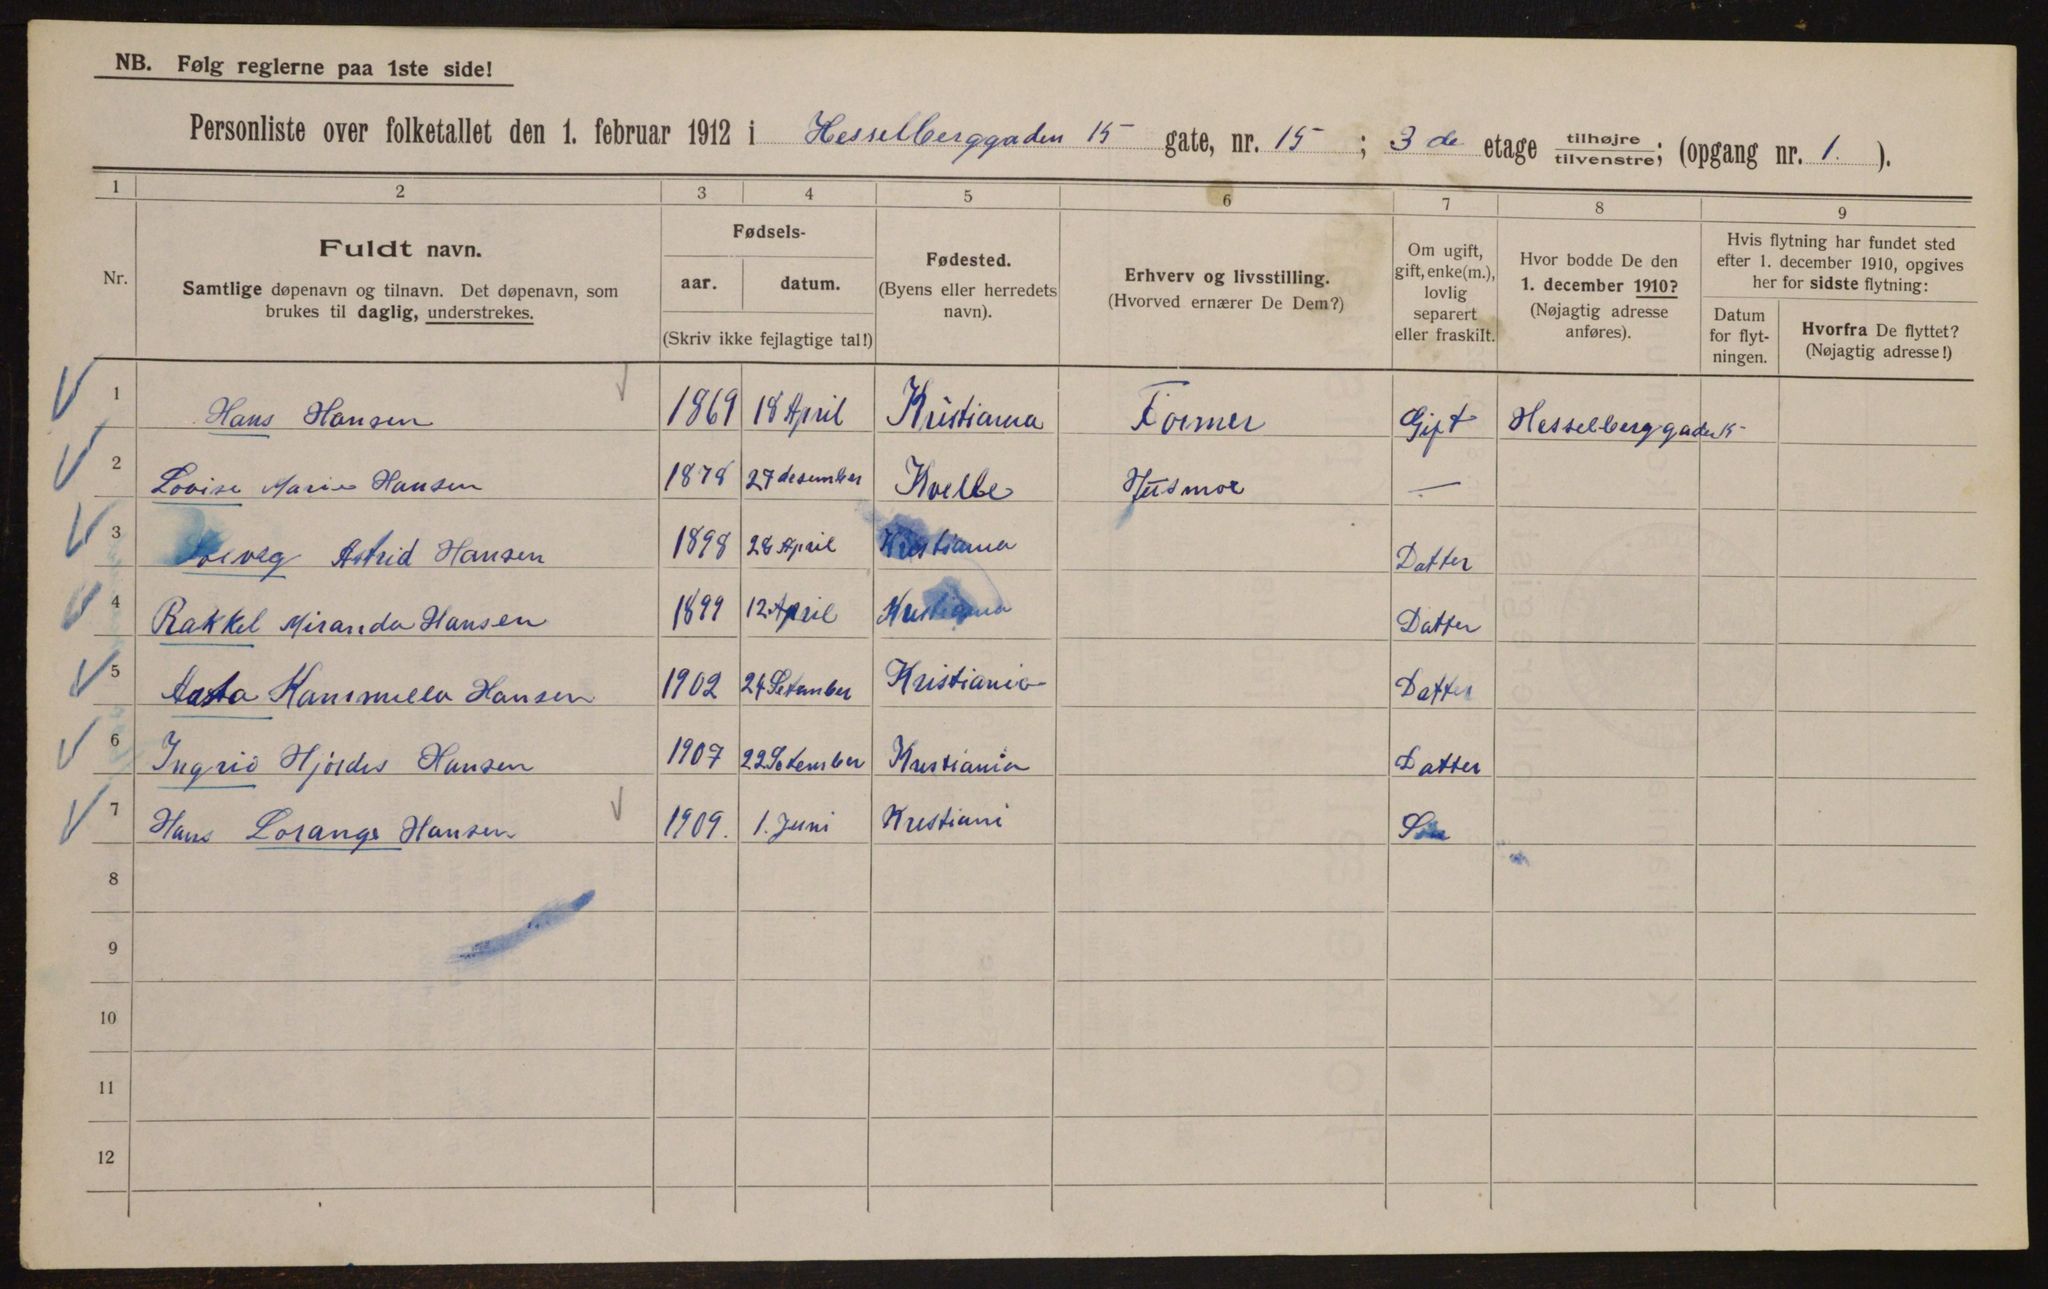 NB. Følg reglerne paa 1ste side!
Personliste over folketallet den 1. februar 1912 i Hesselberggaden 15 gate, nr. 15 ; 3 de etage tilhøjre tilvenstre; (opgang nr. 1. ).
1 2 3 4 5 6 7 8 9
Nr.
Fuldt navn.
Samtlige døpenavn og tilnavn. Det døpenavn, som
brukes til daglig, understrekes.
Fødsels-
aar. datum.
(Skriv ikke fejlagtige tal!)
Fødested.
(Byens eller herredets
navn).
Erhverv og livsstilling.
(Hvorved ernærer De Dem?)
Om ugift,
gift, enke(m.),
lovlig
separert
eller fraskilt.
Hvor bodde De den
1. december 1910?
(Nøjagtig adresse
anføres).
Hvis flytning har fundet sted
efter 1. december 1910, opgives
her for sidste flytning:
Datum
for flyt-
ningen.
Hvorfra De flyttet?
(Nøjagtig adresse!)
1 Hans Hansen 1869 18 April Kristiania Former Gift Hesselberggaden 15
2 Lovise Marie Hansen 1878 27 desember Kvelle Husmor —
3 Astrid Hansen 1898 28 April Kristiania Datter
4 Rakkel Miranda Hansen 1899 12 April Kristiania Datter
5 Aasta Kammilla Hansen 1902 24 Setember Kristiania Datter
6 Ingrid Hjørdis Hansen 1907 22 Setember Kristiania Datter
7 Hans Lorange Hansen 1909. 1. Juni Kristiani Søn
8
9
10
11
12